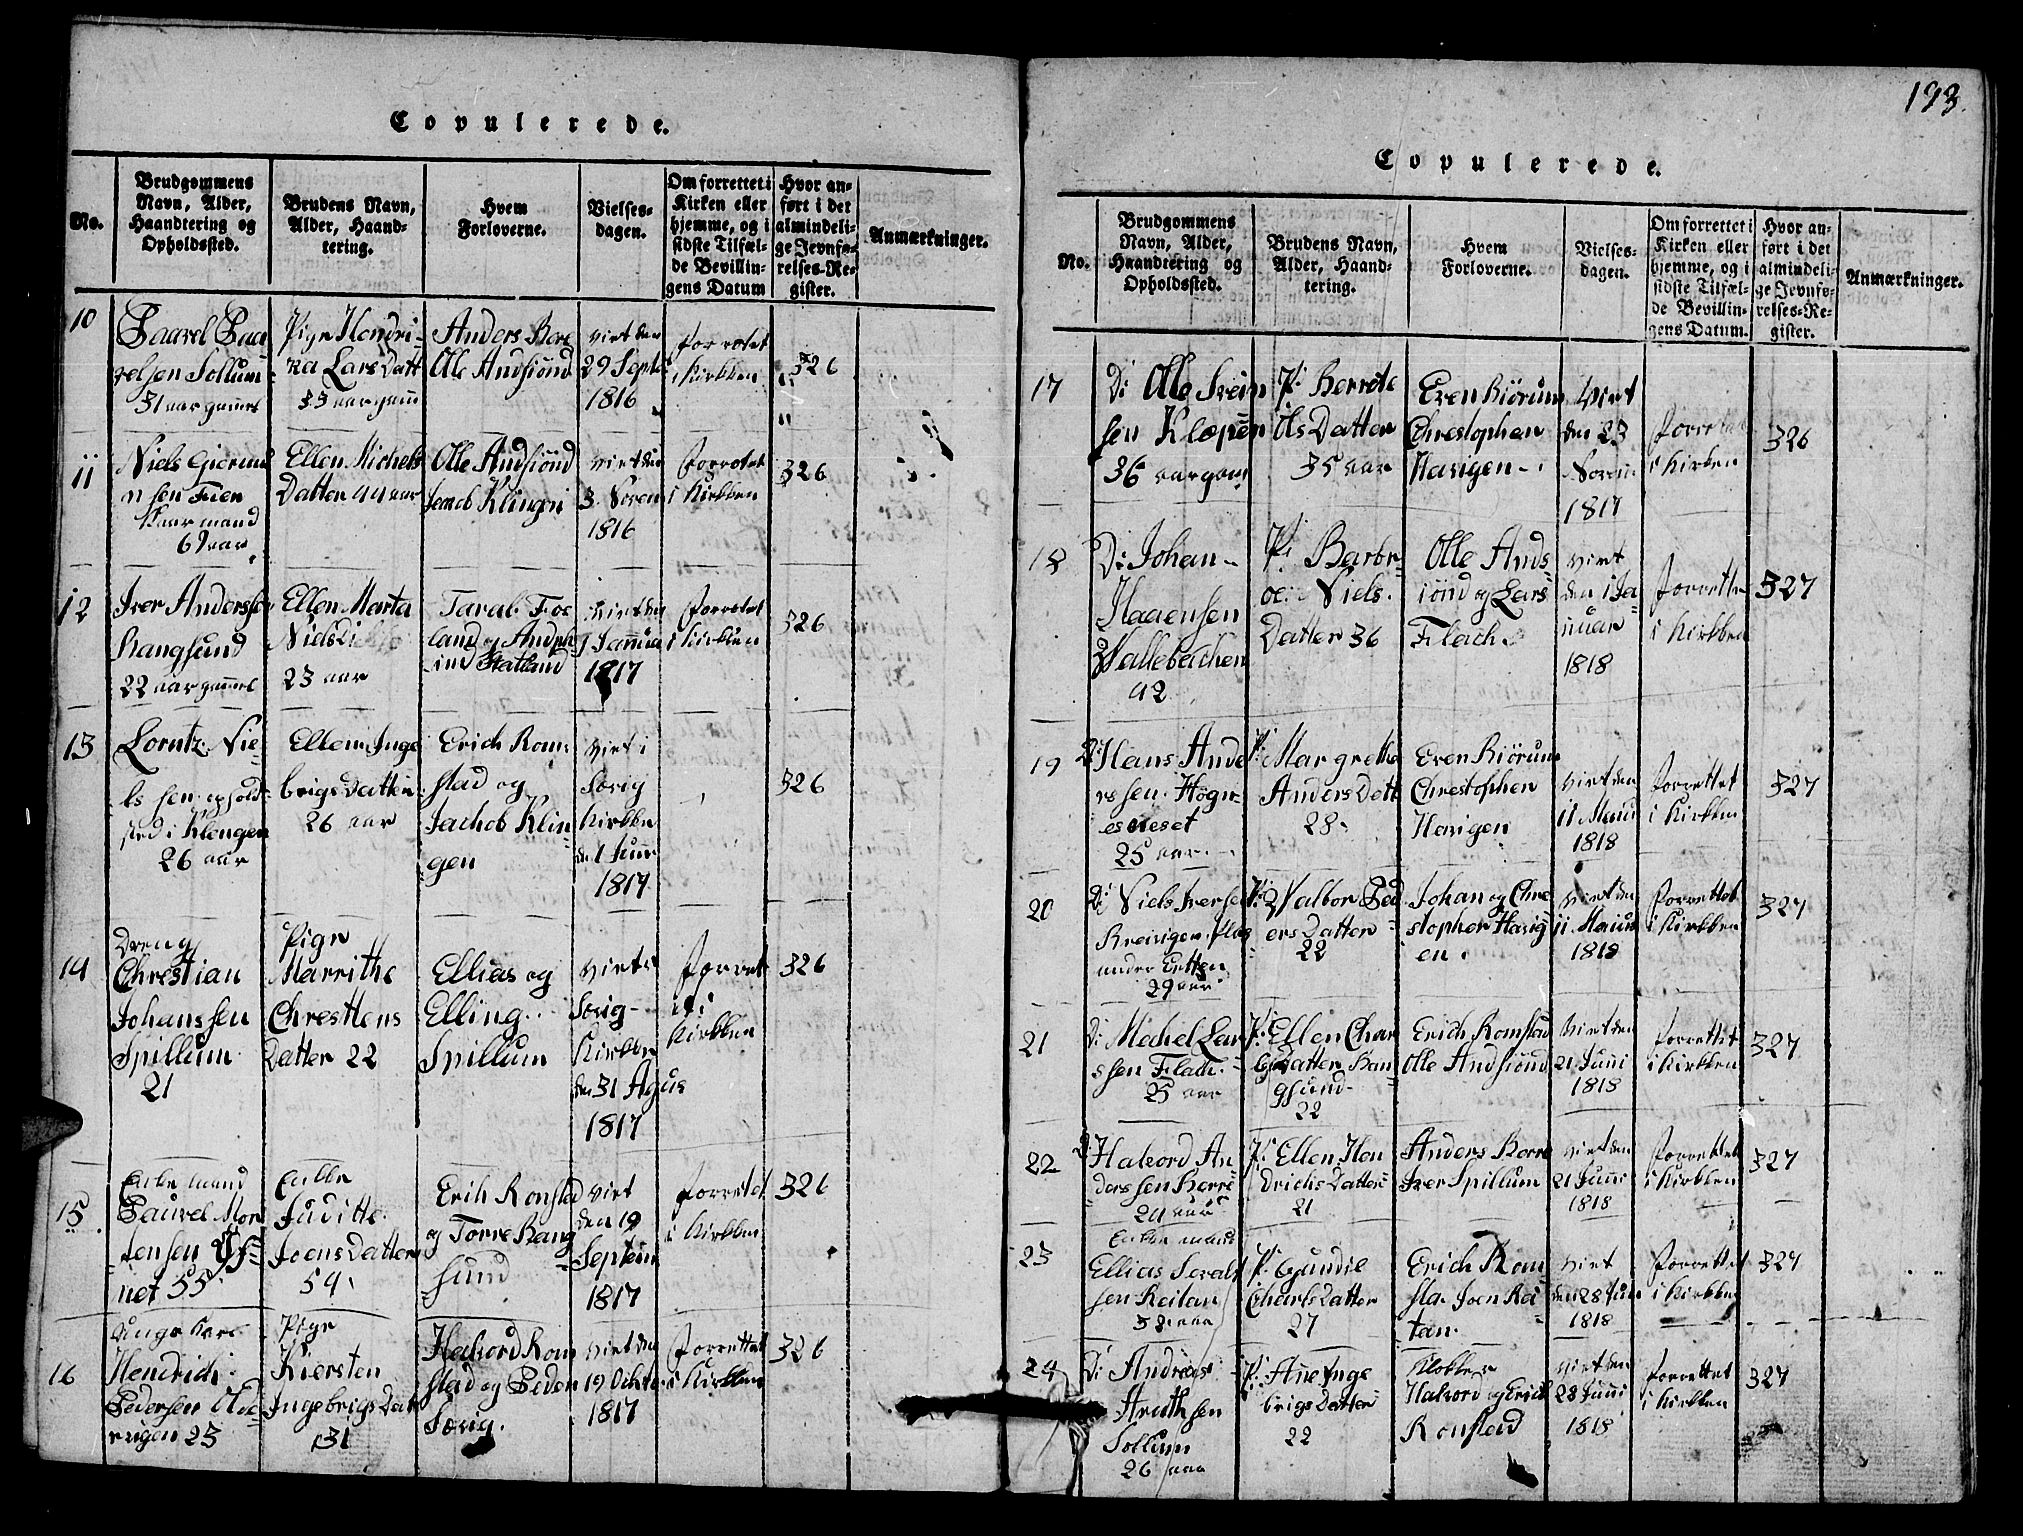 Copulerede.
No.
Brudgommens Navn, Alder, Haandtering og Opholdssted.
Brudens Navn, Alder, Haandtering.
Hvem Forloverne.
Vielsesdagen.
Om forrettet i Kirken eller hjemme, og i sidste Tilfælde Bevillingens Datum
Hvor anført i det almindelige Jevnførelses-Register.
Anmærkninger.
10
Paavel Paa
velsen Sollum
31 aar gamel
Pige Hendri-
ka Lars Datt
33 aar gam̄
Anders Bore
Olle Andsiönd
viet den
29 Septe
1816
forretet
i Kirkken
326
11
Niels Gierun
n sen Fier
kaar mand
69 aar
Ellen Michels
Datter 44 aar
Olle Andsiönd
Jacob Klingen
viet den
3 Noven
1816
forretet
i Kirkken
326
12
Iver Anderssen
Rangsund
22 aar gamel
Ellen Marta
Niels
23 aar
Taral Foe
land og Anders
Fatland
viet den
1 Januar
1817
forretet
i Kirkken
326
13
Lorntz Nie-
ls sen ophold-
sted i Klengen
26 aar
Ellen Inge
brigs Datter
26 aar
Erich Rom-
stad og
Jachob Klin-
gen
viet i
Særig
Kirkken
den 1 Junī
1817
326
14
Dreng
Chrestian
Johanssen
Spillum
21
Pige
Marrithe
Chresttens
Datter 22
Ellias og
Elling
Spillum
viet i
Særig-
Kirkken
den 31 Agus
1817
forret
et i
Kirkken
326
15
Enke mand
Paavel Mor
tensen
net 55
Enkke
Juditte
Joens Datter
54
Erich Ronstad
og Torre Rang
sund
viet
den 19
Septem
1817
forretet
i Kirkken
326
16
Unge Karl
Hendrich
Pedersen Hø-
vigen 23
Pige
Kiersten
Ingebrigs Dat
31
Halvord Rom
stad og Peder
Særig
viet den
19 Ochto
1817
forrettet
i Kirkken
326
193.
Copulerede.
No.
Brudgommens Navn, Alder, Haandtering og Opholdssted.
Brudens Navn, Alder, Haandtering.
Hvem Forloverne.
Vielsesdagen.
Om forrettet i Kirken eller hjemme, og i sidste Tilfælde Bevillingens Datum.
Hvor anført i det almindelige Jevnførelses-Register.
Anmærkninger.
17
D: Olle Svein
sen Klopen
36 aar gam
P: Berrete
Ols Datter
35 aar
Even Biörum
Chrestopher
Havigen
viet
den 23
Noven
1817
forretet
i Kirken
326
18
D: Johan
Haaensen
Vallebachen
42
P: Barbr-
oe Niels
Datter 36
Olle Ands
iönd og Lars
Flach
viet
den 1 Ja-
nuar
1818
forrettet
i Kirkken
327
19
D: Hans Ande
rs sen Högn-
esneset
25 aar
P: Margrethe
Anders Datt
28
Even Biörum
Chrestopher
Havigen
viet den
11 Mai
1818
forrettet
i Kirkken
327
20
D: Niels Iverse
Kreivigen Plas
under Letten
29 aar
P: Valbor Ped
ers Datter
22
Johan og Chre
stopher Havig
en
viet den
11 Maius
1818
forrettet
i Kirkken
327
21
D: Mechel Lar
s sen Flach
25 aar
P: Ellen Char
Datter Ran-
gsund
22
Erich Romstad
Olle Andsiönd
viet den
21 Junii
1818
forrettet
i Kirkken
327
22
D: Halvord An
derssen Berre
24 aar
P: Ellen Hen
drichs Datter
21
Anders Borre
Iver Spillum
viet den
21 Junii
1818
forrettet
i Kirkken
327
23
Enke mand
Ellias Sivalt
sen Reitan
38 aar
P: Gundil
Charls Datter
27
Erich Rom
sta Joen Rei
tan
viet
den 28 Jun
1818
forrettet
i Kirkken
327
24
D: Andreas
Arnthsen
Sollium
26 aar
P: Ane Inge
brigs Datter
22
Klokker
Halvord og Erich
Ronstad
viet den
28 Junii
1818
forrettet
i Kirkken
327